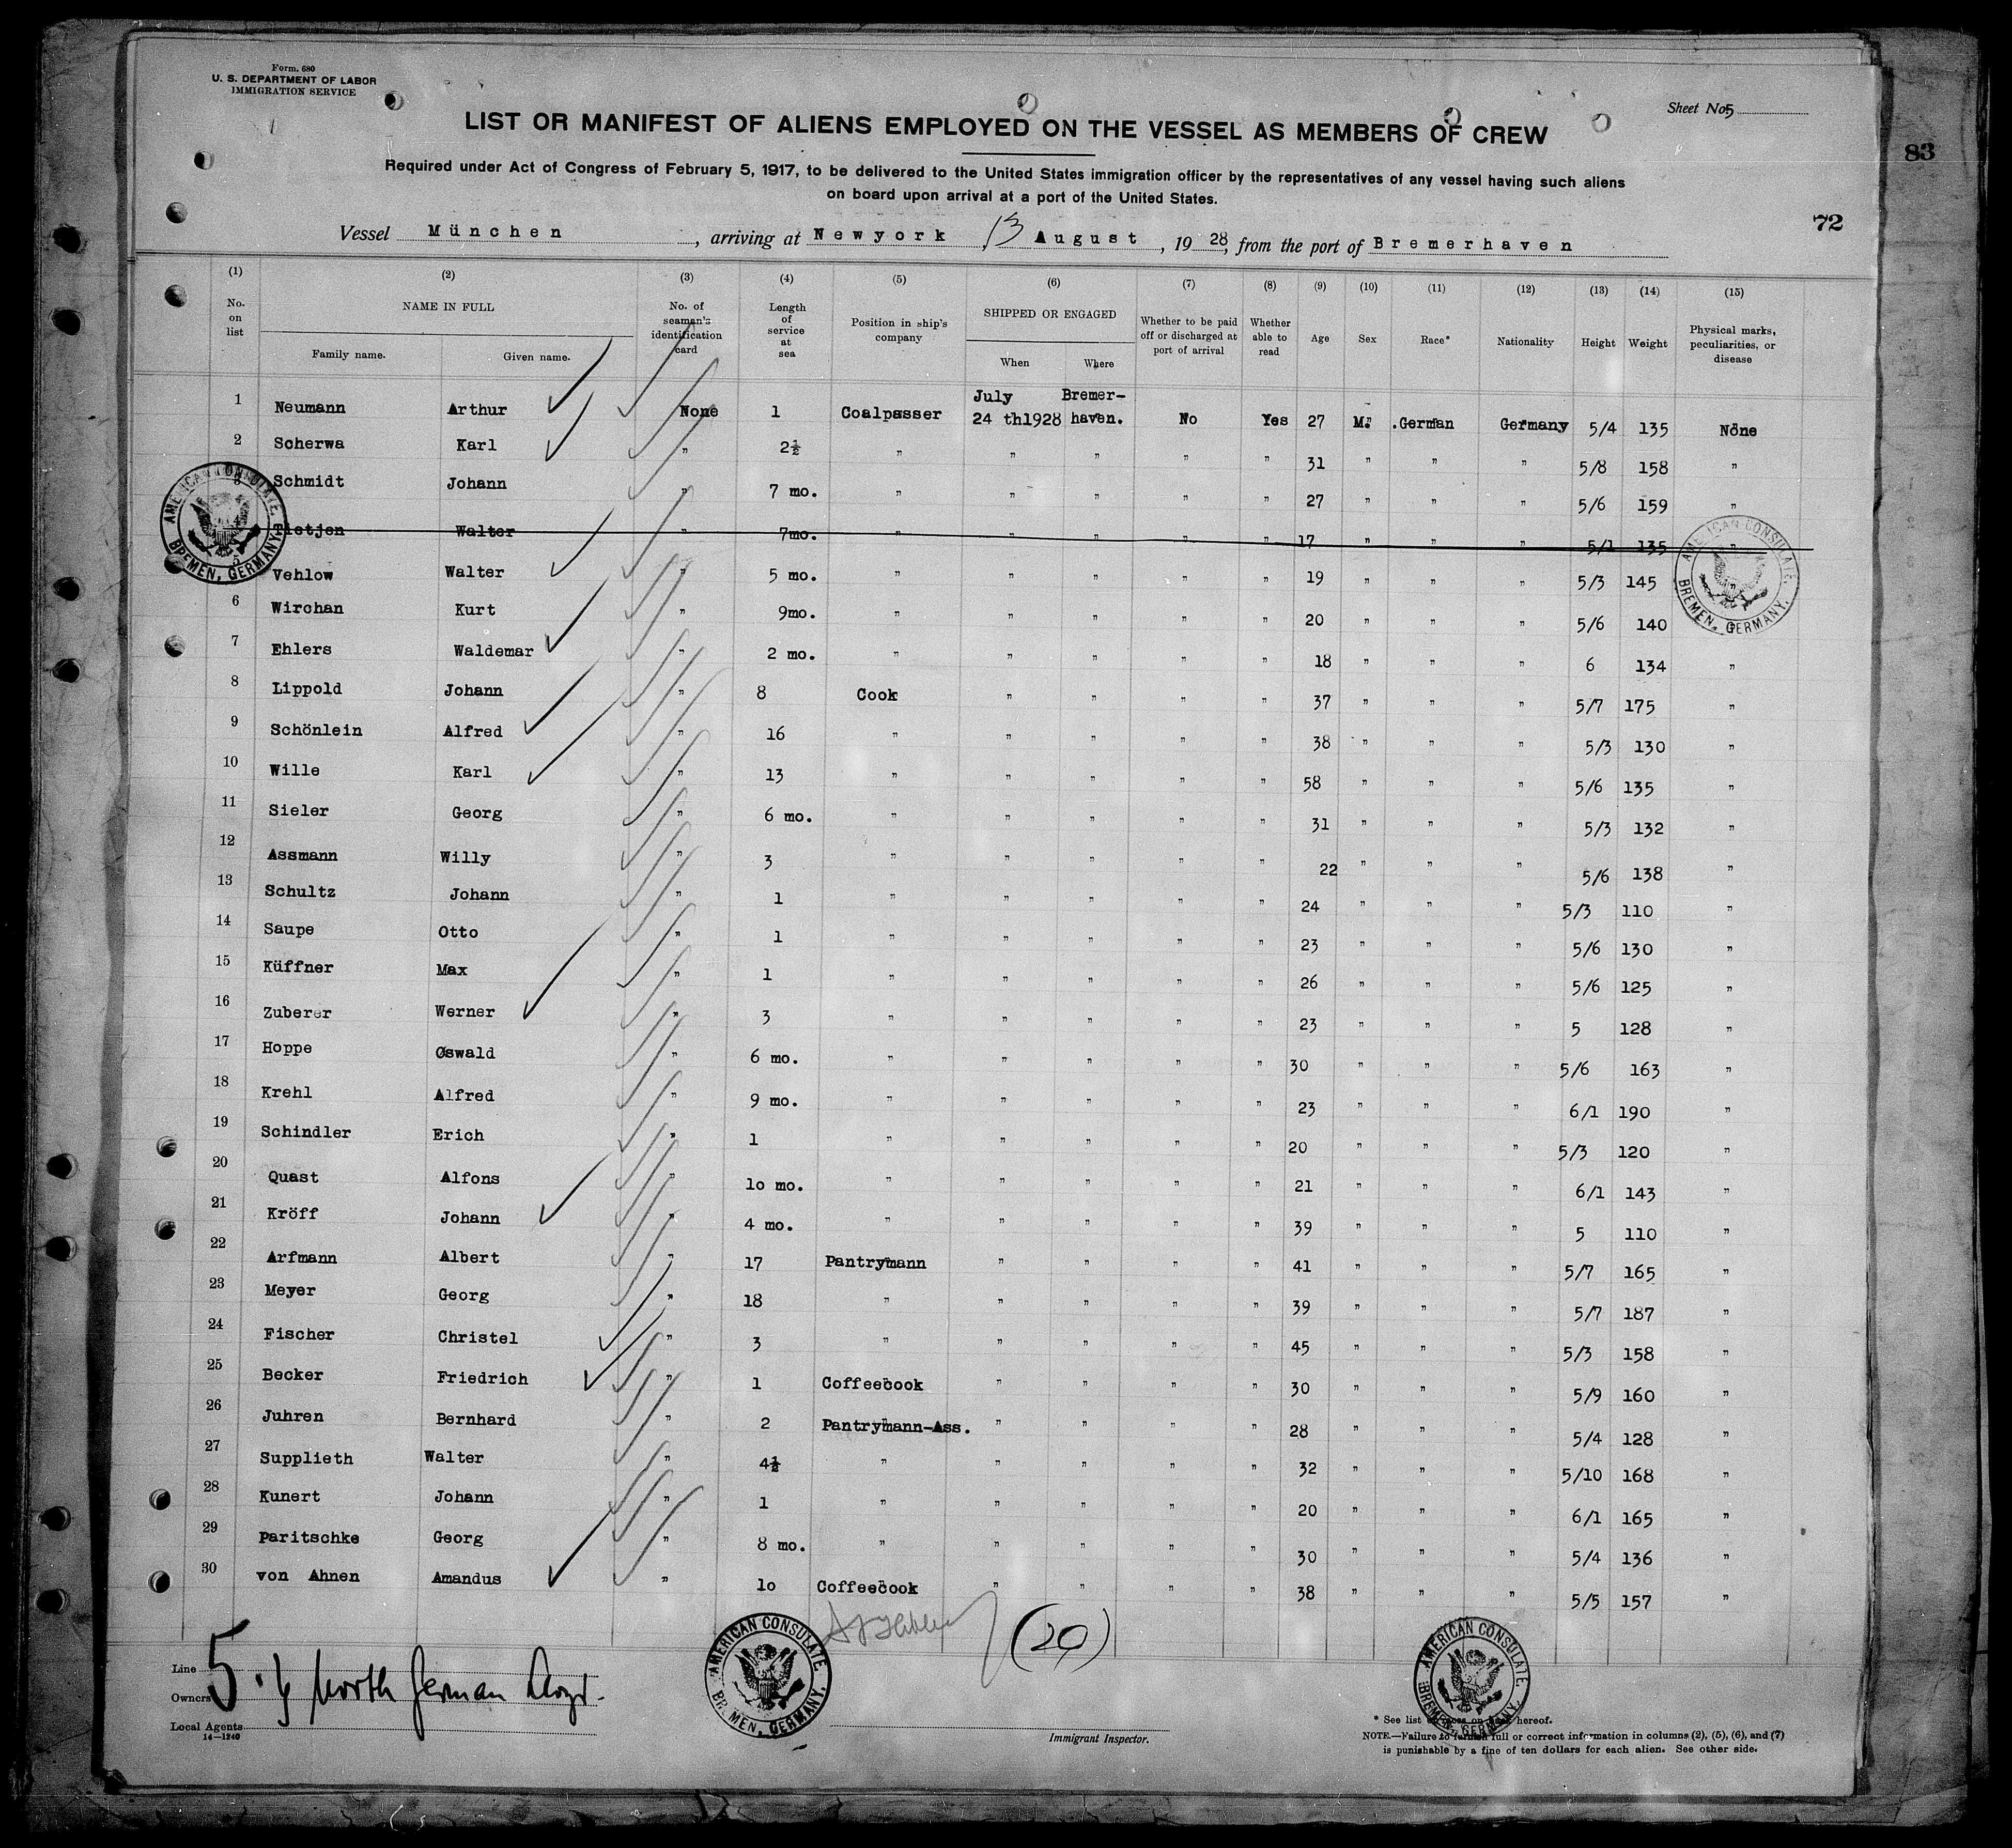 Form. 680
U. S. DEPARTMENT OF LABOR
IMMIGRATION SERVICE
Sheet No. 5
83
72
LIST OR MANIFEST OF ALIENS EMPLOYED ON THE VESSEL AS MEMBERS OF CREW
Required under Act of Congress of February 5, 1917, to be delivered to the United States immigration officer by the representatives of any vessel having such aliens
on board upon arrival at a port of the United States.
Vessel München , arriving at Newyork , 13 August , 19 28, from the port of Bremerhaven
(1) (2) (3) (4) (5) (6) (7) (8) (9) (10) (11) (12) (13) (14) (15)
No. on list
NAME IN FULL
Family name. Given name.
No. of seaman's identification card
Length of service at sea
Position in ship's company
SHIPPED OR ENGAGED
When Where
Whether to be paid off or discharged at port of arrival
Whether able to read
Age
Sex
Race*
Nationality
Height
Weight
Physical marks, peculiarities, or disease
1 Neumann Arthur None 1 Coalpasser July 24 th1928 Bremer-haven. No Yes 27 M. German Germany 5/4 135 None
2 Scherwa Karl " 2½ " " " " " 31 " " " 5/8 158 "
3 Schmidt Johann " 7 mo. " " " " " 27 " " " 5/6 159 "
4 Tietjen Walter " 7mo. " " " " " 17 " " " 5/1 135 "
5 Vehlow Walter " 5 mo. " " " " " 19 " " " 5/3 145 "
6 Wirchan Kurt " 9mo. " " " " " 20 " " " 5/6 140 "
7 Ehlers Waldemar " 2 mo. " " " " " 18 " " " 6 134 "
8 Lippold Johann " 8 Cook " " " " 37 " " " 5/7 175 "
9 Schönlein Alfred " 16 " " " " " 38 " " " 5/3 130 "
10 Wille Karl " 13 " " " " " 58 " " " 5/6 135 "
11 Sieler Georg " 6 mo. " " " " " 31 " " " 5/3 132 "
12 Assmann Willy " 3 " " " " " 22 " " " 5/6 138 "
13 Schultz Johann " 1 " " " " " 24 " " " 5/3 110 "
14 Saupe Otto " 1 " " " " " 23 " " " 5/6 130 "
15 Küffner Max " 1 " " " " " 26 " " " 5/6 125 "
16 Zuberer Werner " 3 " " " " " 23 " " " 5 128 "
17 Hoppe Oswald " 6 mo. " " " " " 30 " " " 5/6 163 "
18 Krehl Alfred " 9 mo. " " " " " 23 " " " 6/1 190 "
19 Schindler Erich " 1 " " " " " 20 " " " 5/3 120 "
20 Quast Alfons " 10 mo. " " " " " 21 " " " 6/1 143 "
21 Kröff Johann " 4 mo. " " " " " 39 " " " 5 110 "
22 Arfmann Albert " 17 Pantrymann " " " " 41 " " " 5/7 165 "
23 Meyer Georg " 18 " " " " " 39 " " " 5/7 187 "
24 Fischer Christel " 3 " " " " " 45 " " " 5/3 158 "
25 Becker Friedrich " 1 Coffeecook " " " " 30 " " " 5/9 160 "
26 Juhren Bernhard " 2 Pantrymann-Ass. " " " " 28 " " " 5/4 128 "
27 Supplieth Walter " 4½ " " " " " 32 " " " 5/10 168 "
28 Kunert Johann " 1 " " " " " 20 " " " 6/1 165 "
29 Paritschke Georg " 8 mo. " " " " " 30 " " " 5/4 136 "
30 von Ahnen Amandus " 10 Coffeecook " " " " 38 " " " 5/5 157 "
AMERICAN CONSULATE, BREMEN, GERMANY.
AMERICAN CONSULATE, BREMEN, GERMANY.
AMERICAN CONSULATE BREMEN, GERMANY.
AMERICAN CONSULATE BREMEN, GERMANY.
(29)
Line
Owners North German Lloyd.
Local Agents
14—1240
Immigrant Inspector.
* See list of races on back hereof.
NOTE.—Failure to furnish full or correct information in columns (2), (5), (6), and (7)
is punishable by a fine of ten dollars for each alien. See other side.